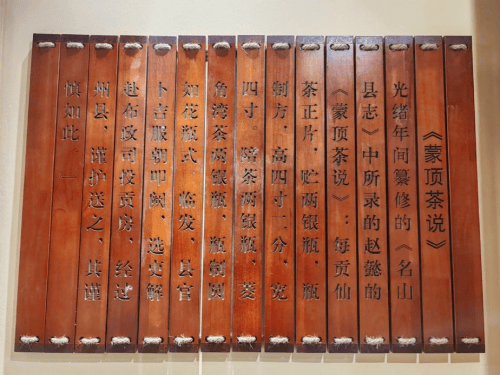 《蒙顶茶说》
光绪年间纂修的《名山
县志》中所录的赵懿的
《蒙顶茶说》：每贡仙
茶正片，贮两银瓶，瓶
制方，高四寸二分，宽
四寸，陪茶两银瓶，菱
角湾茶两银瓶，瓶制圆
如花瓶式。临发，县官
卜吉服朝叩阙，选吏解
赴布政司投贡房，经过
州县，谨护送之，其谨
慎如此。